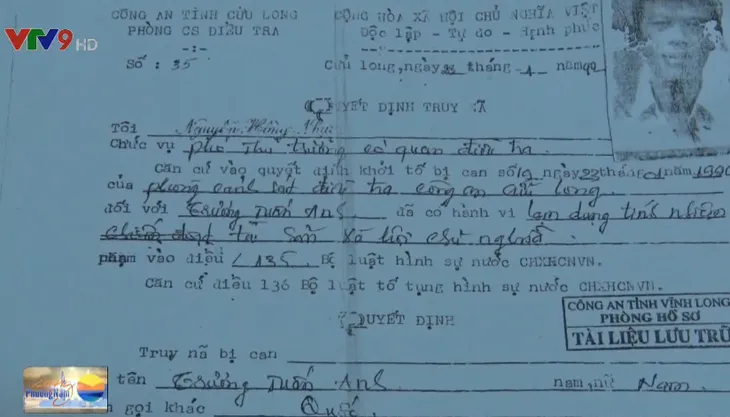 VTV9 HD
CÔNG AN TỈNH CỬU LONG
PHÒNG CS ĐIỀU TRA
-:-
Số : 35
CỘNG HÒA XÃ HỘI CHỦ NGHĨA VIỆT
Độc lập - Tự do - Hạnh phúc
Cửu long, ngày 22 tháng 1 năm 90
QUYẾT ĐỊNH TRUY NÃ
Tôi Nguyễn Hồng
Chức vụ phó Thủ trưởng cơ quan điều tra
Căn cứ vào quyết định khởi tố bị can số 19 ngày 22 tháng 01 năm 1990
của phòng cảnh sát điều tra công an Cửu Long.
đối với Trương Tuấn Anh đã có hành vi lạm dụng tính nhiệm
chiếm đoạt tài sản xã hội chủ nghĩa
phạm vào điều 135. Bộ luật hình sự nước CHXHCNVN.
Căn cứ điều 136 Bộ luật tố tụng hình sự nước CHXHCNVN.
CÔNG AN TỈNH VĨNH LONG
PHÒNG HỒ SƠ
TÀI LIỆU LƯU TRỮ
QUYẾT ĐỊNH
Truy nã bị can
tên Trương Tuấn Anh nam, nữ Nam
gọi khác Quốc
Phương Nam